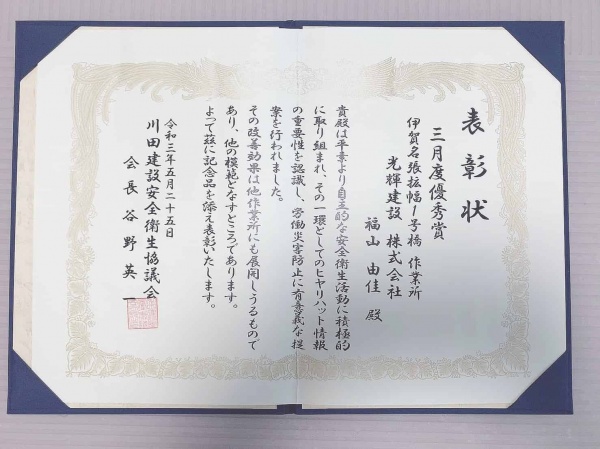 表彰状
三月度優秀賞
伊賀名張拡幅1号橋 作業所
光輝建設 株式会社
福山 由佳 殿
貴殿は平素より自主的な安全衛生活動に積極的
に取り組まれ、その一環としてのヒヤリハット情報
の重要性を認識し、労働災害防止に有意義な提
案を行われました。
その改善効果は他作業所にも展開しうるもので
あり、他の模範となすところであります。
よって茲に記念品を添え表彰いたします。
令和三年五月二十五日
川田建設安全衛生協議会
会長 谷野 英一